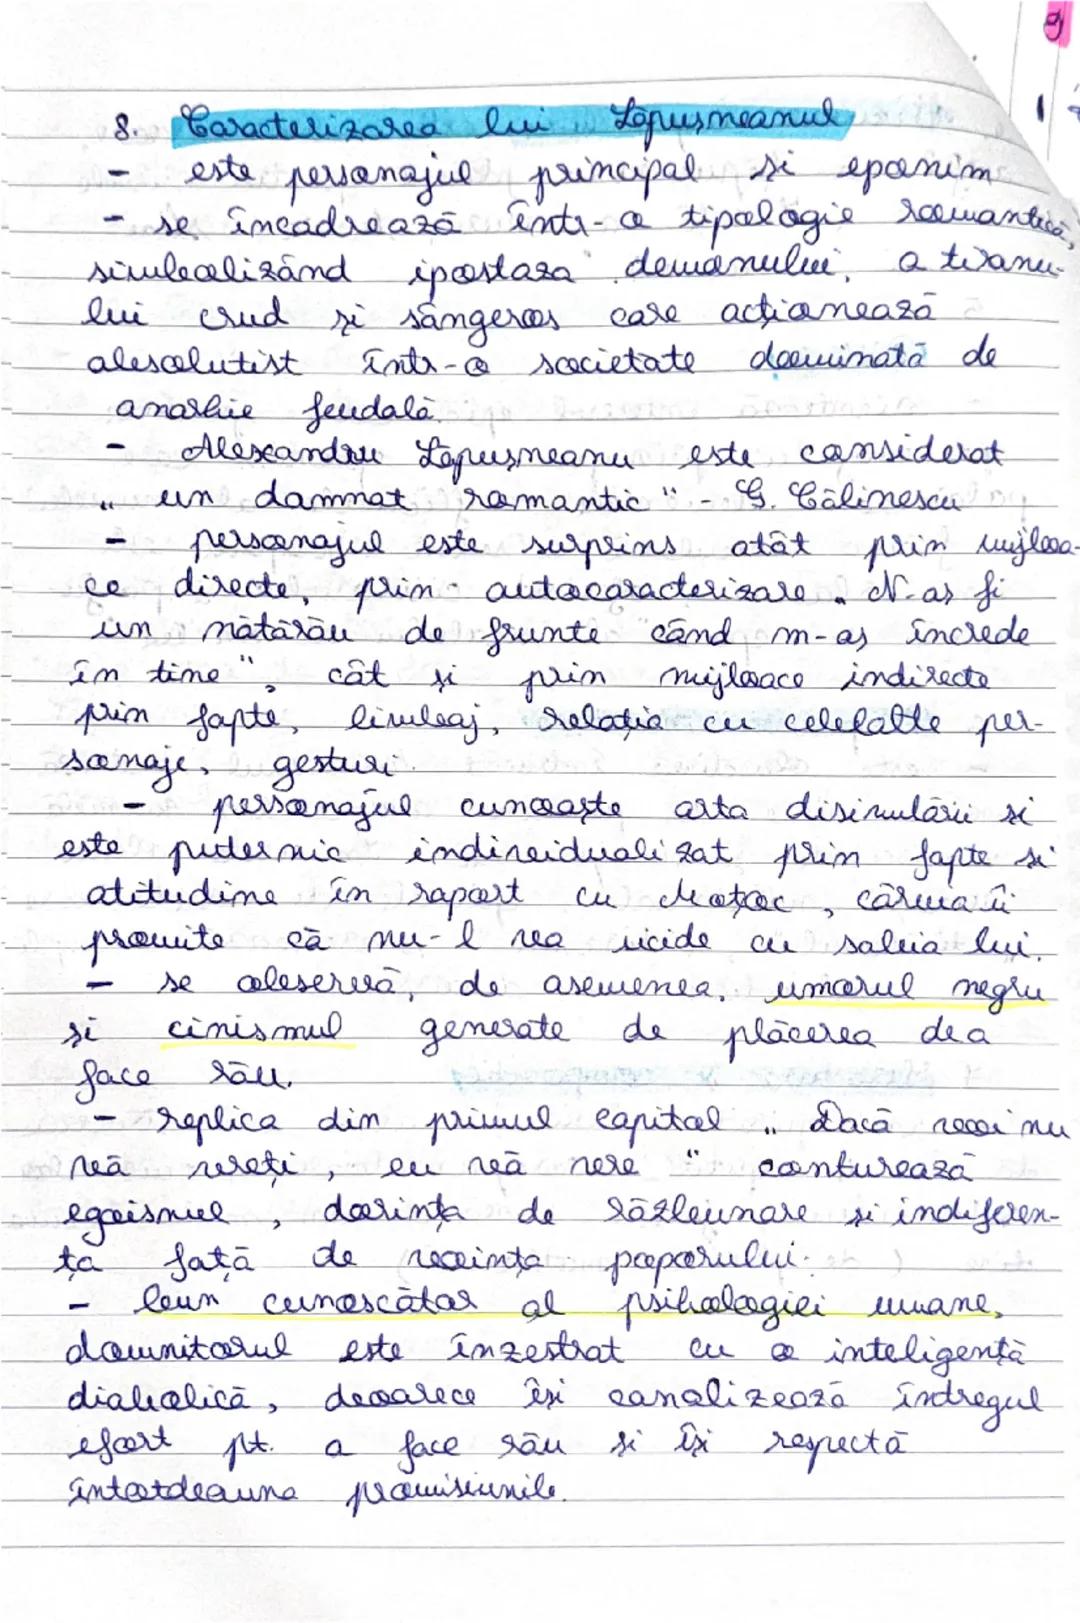 g
8. Caracterizarea lui Lăpușneanul
- este personajul principal și eponim
- se încadrează într-o tipologie romantică,
simbolizând ipostaza demonului, a tiranu-
lui crud și sângeros care acționează
absolutist într-o societate dominată de
anarhie feudală.
- Alexandru Lăpușneanu este considerat
„ un damnat romantic " - G. Călinescu
- personajul este surprins atât prin mijloa-
ce directe, prin autocaracterizare „ N-aș fi
un nătărău de frunte când m-aș încrede
în tine", cât și prin mijloace indirecte
prin fapte, limbaj, relația cu celelalte per-
sonaje, gesturi.
- personajul cunoaște arta disimulării și
este puternic individualizat prin fapte și
atitudine în raport cu Moțoc, căruia îi
promite că nu-l va ucide cu sabia lui.
- se observă, de asemenea, umorul negru
și cinismul generate de plăcerea de a
face rău.
- replica din primul capitol „ Dacă voi nu
mă vreți, eu vă vere " conturează
egoismul, dorința de răzbunare și indiferen-
ța față de voința poporului.
- bun cunoscător al psihologiei umane,
domnitorul este înzestrat cu o inteligență
diabolică, deoarece își canalizează întregul
efort pt. a face rău și își respectă
întotdeauna promisiunile.